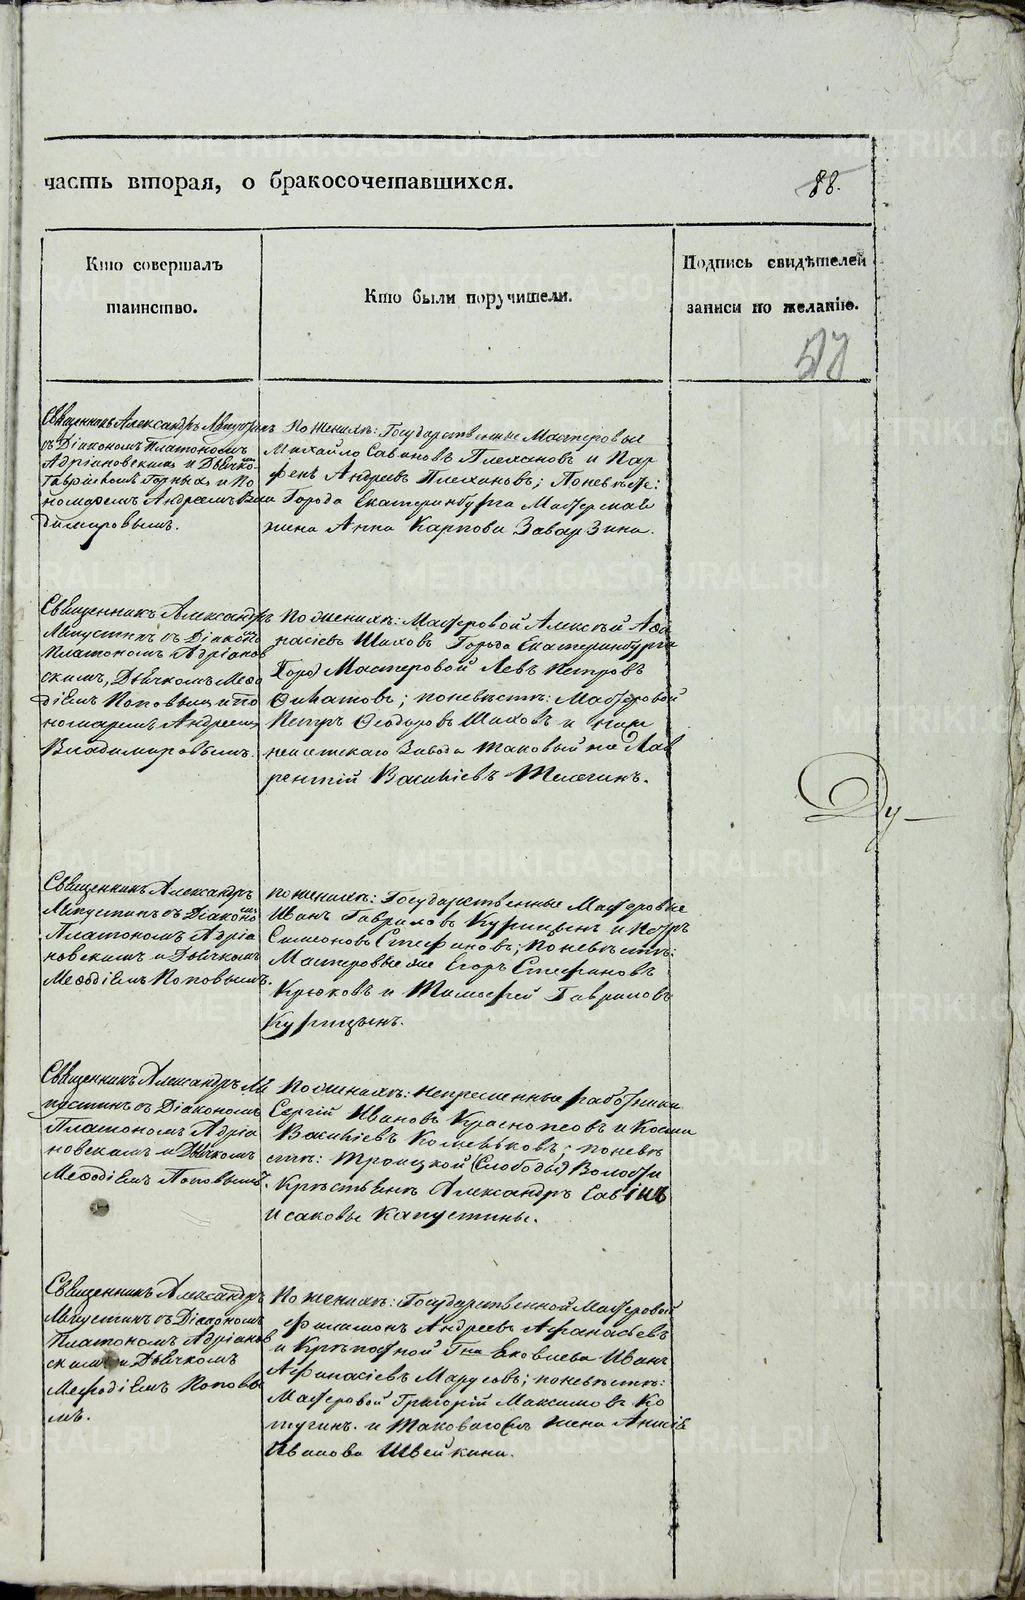 часть вторая, о бракосочетавшихся.
88.
Кто совершалъ
таинство.
Кто были поручители.
Подпись свидѣтелей
записи по желанію.
Священникъ Александръ
съ Діакономъ Платономъ
Адріановскимъ и Дьячко
и По
номаремъ Андреемъ Вла
димировымъ.
По женихѣ: Государственные Мастеровые
Михайло Савиновъ Плехановъ и Пар
фенъ Андреевъ Плехановъ; По невѣстѣ:
Города Екатеринбурга Мастерская
жена Анна Карпова Заварзина.
Священникъ Александръ
съ Діаконо
Платономъ Адріанов
скимъ, Дьячкомъ Меѳо
діемъ Поповымъ и по
номаремъ Андреемъ
Владимировымъ.
По женихѣ: Мастеровой Алексѣй Аѳа
насіевъ Шиховъ Города Екатеринбурга
Мастеровой Левъ Петровъ
Филатовъ; по невѣстѣ: Мастеровой
Петръ Ѳеодоровъ Шиховъ и
Завода таковый же Лав
рентій Васильевъ Телегинъ.
Священникъ Александръ
съ Діаконо
Платономъ Адріа
новскимъ и Дьячкомъ
Меѳодіемъ Поповымъ.
по женихѣ: Государственные Мастеровые
Иванъ Гавриловъ Курицынъ и Петръ
Симеоновъ Стефановъ; по невѣстѣ:
Мастеровые же Егоръ Стефановъ
Крюковъ и Тимофей Гавриловъ
Курицынъ.
Священникъ Александръ
съ Діакономъ
Платономъ Адріа
новскимъ и Дьячкомъ
Меѳодіемъ Поповымъ.
По женихѣ: непременные работники
Сергій Ивановъ Красноперовъ и Косма
Васильевъ; по невѣ
стѣ: Троицкой (Слободы) Волости
Крестьяне Александръ
Исаковы Капустины.
Священникъ Александръ
съ Діакономъ
Платономъ Адріанов
скимъ и Дьячкомъ
Меѳодіемъ Поповы
мъ.
По женихѣ: Государственной Мастеровой
Филимонъ Андреевъ Афанасьевъ
и Крѣпостной Гна Яковлева Иванъ
Афанасіевъ; по невѣстѣ:
Мастеровой Григорій Максимовъ Ко
и таковаго жена
Иванова Швейкина.
METRIKI.GASO-URAL.RU